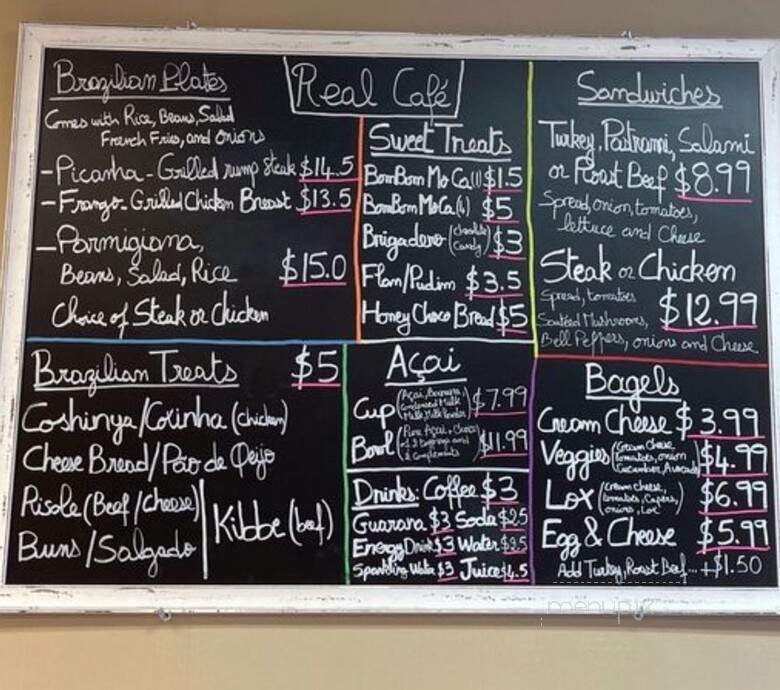 Real Café
Brazilian Plates
Comes with Rice, Beans, Salad
French Fries, and onions
- Picanha - Grilled rump steak $14.5
- Frango - Grilled Chicken Breast $13.5
- Parmigiana,
Beans, Salad, Rice $15.0
Choice of Steak or Chicken
Sweet Treats
BomBom MoCa(1) $1.5
BomBom MoCa(4) $5
Brigadero (chocolate Candy) $3
Flan/Pudim $3.5
Honey Choco Bread $5
Sandwiches
Turkey, Pastrami, Salami
or Roast Beef $8.99
Spread, onion, tomatoes,
lettuce and Cheese
Steak or Chicken
Spread, tomatoes $12.99
Sautéed Mushrooms,
Bell Peppers, onions and Cheese
Brazilian Treats $5
Coshinya/Coxinha (chicken)
Cheese Bread/Pão de Qeijo
Risole (Beef/cheese)
Buns/Salgado
Kibbe (beef)
Açai
Cup (Açai, Banana, Condensed Milk Milk, Milk Powder) $7.99
Bowl (Pure Açai, Choice of 2 toppings and 2 Complements $11.99
Drinks: Coffee $3
Guarana $3 Soda $2.5
Energy Drink $3 Water
Sparkling Water $3 Juice $4.5
Bagels
Cream Cheese $3.99
Veggies (Cream cheese, tomatoes, onion Cucumber, Avocado) $4.99
Lox (Cream cheese, tomatoes, Capers, onions, Lox) $6.99
Egg & Cheese $5.99
Add Turkey, Roast Beef... +$1.50